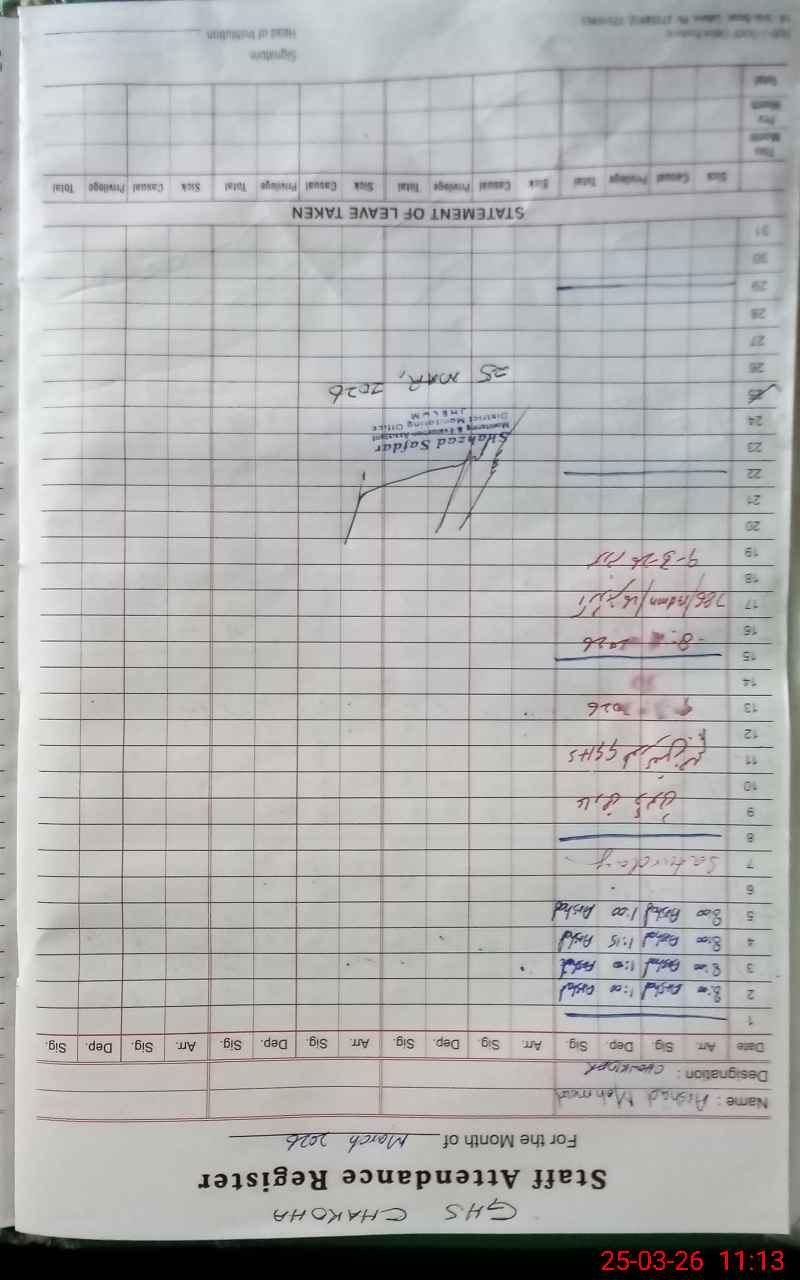 GHS CHAKOHA
Staff Attendance Register
For the Month of March 2026
Name : Arshad Mehmood
Designation :
Date Arr. Sig. Dep. Sig. Arr. Sig. Dep. Sig. Arr. Sig. Dep. Sig. Arr. Sig. Dep. Sig.
1
2 8:00 Arshad 1:00 Arshad
3 8:00 Arshad 1:00 Arshad
4 8:00 Arshad 1:15 Arshad
5 8:00 Arshad 1:00 Arshad
6
7 Saturday
8
9
10
11 GGHS
12
13 2026
14
15
16 2026
17 786/Admn/
18
19 9-3-26
20
21
22
23
24
25
26
27
28
29
30
31
Shahzad Safdar
Monitoring & Evaluation Assistant
District Monitoring Office
JHELUM
25 MAR, 2026
STATEMENT OF LEAVE TAKEN
Sick Casual Privilege Total Sick Casual Privilege Total Sick Casual Privilege Total Sick Casual Privilege Total
This Month
Pre Month
Total
Signature
Head of Institution
25-03-26 11:13